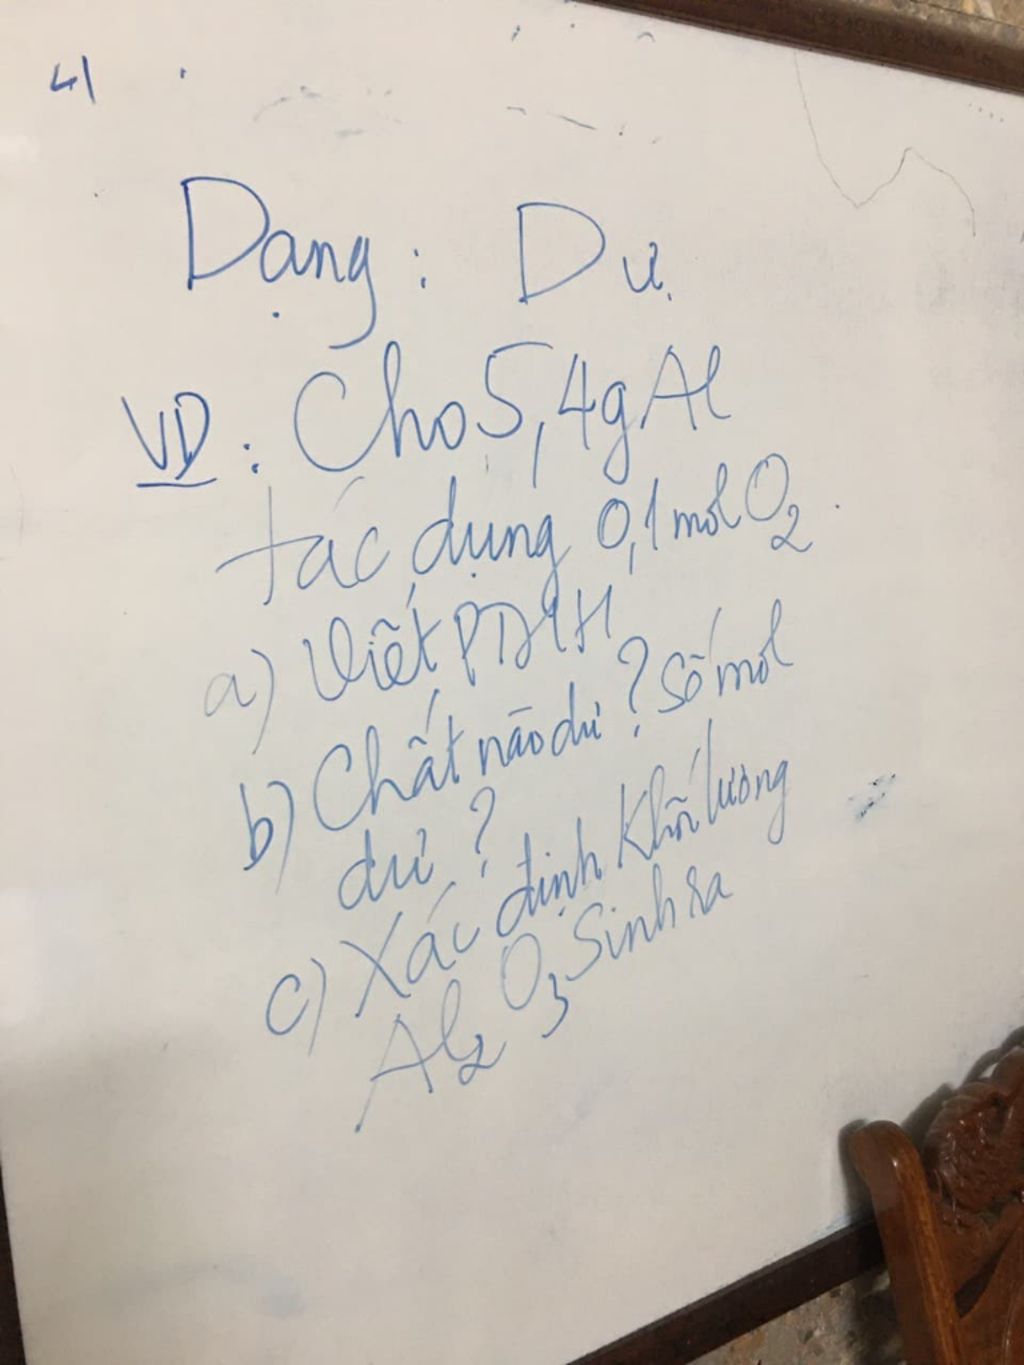 4)
Dạng: Dư
VD: Cho 5,4g Al
tác dụng 0,1 mol O₂
a) Viết PTHH
b) Chất nào dư? Số mol
dư?
c) Xác định khối lượng
Al₂O₃ sinh ra